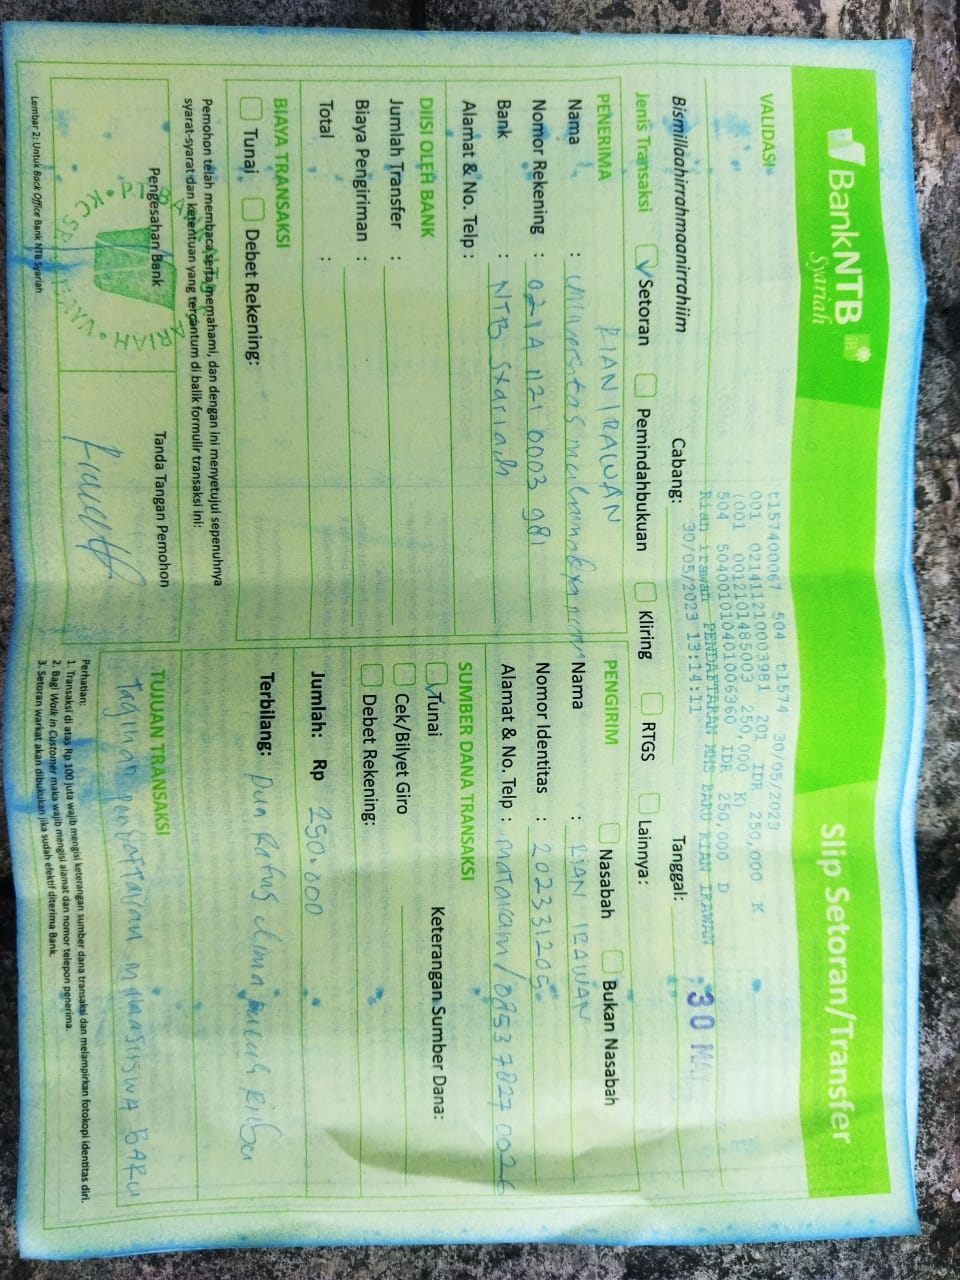 BankNTB
Syariah
Slip Setoran/Transfer
VALIDASI
t157400067 504 t1574 30/05/2023
001 0214112100003981 201 IDR 250,000 K
(001 0012101485003 250,000 K)
504 504001010401006360 IDR 250,000 D
Rian irawan PENDAFTARAN MHS BARU RIAN IRAWAN
30/05/2023 13:14:11
Bismillaahirrahmaanirrahiim
Cabang:
Tanggal:
30 MAI
Jenis Transaksi
Setoran
Pemindahbukuan
Kliring
RTGS
Lainnya:
PENERIMA
RIAN IRAWAN
Nama : Universitas
Nomor Rekening : 0211 1121 0003 981
Bank : NTB Syariah
Alamat & No. Telp :
PENGIRIM
Nasabah
Bukan Nasabah
Nama : RIAN IRAWAN
Nomor Identitas : 20231205
Alamat & No. Telp : mataram/085378270026
DIISI OLEH BANK
Jumlah Transfer :
Biaya Pengiriman :
Total :
SUMBER DANA TRANSAKSI
Tunai
Cek/Bilyet Giro
Debet Rekening:
Keterangan Sumber Dana:
BIAYA TRANSAKSI
Tunai
Debet Rekening:
Jumlah: Rp 250.000
Terbilang: Dua Ratus Lima Puluh Ribu
Pemohon telah membaca serta memahami, dan dengan ini menyetujui sepenuhnya
syarat-syarat dan ketentuan yang tercantum di balik formulir transaksi ini:
Pengesahan Bank
Tanda Tangan Pemohon
TUJUAN TRANSAKSI
Tagihan pendaftaran mahasiswa BARU
Perhatian:
1. Transaksi di atas Rp 100 juta wajib mengisi keterangan sumber dana transaksi dan melampirkan fotokopi identitas diri.
2. Bagi Walk in Customer maka wajib mengisi alamat dan nomor telepon penerima.
3. Setoran warkat akan dibukukan jika sudah efektif diterima Bank.
Lembar 2: Untuk Back Office Bank NTB Syariah